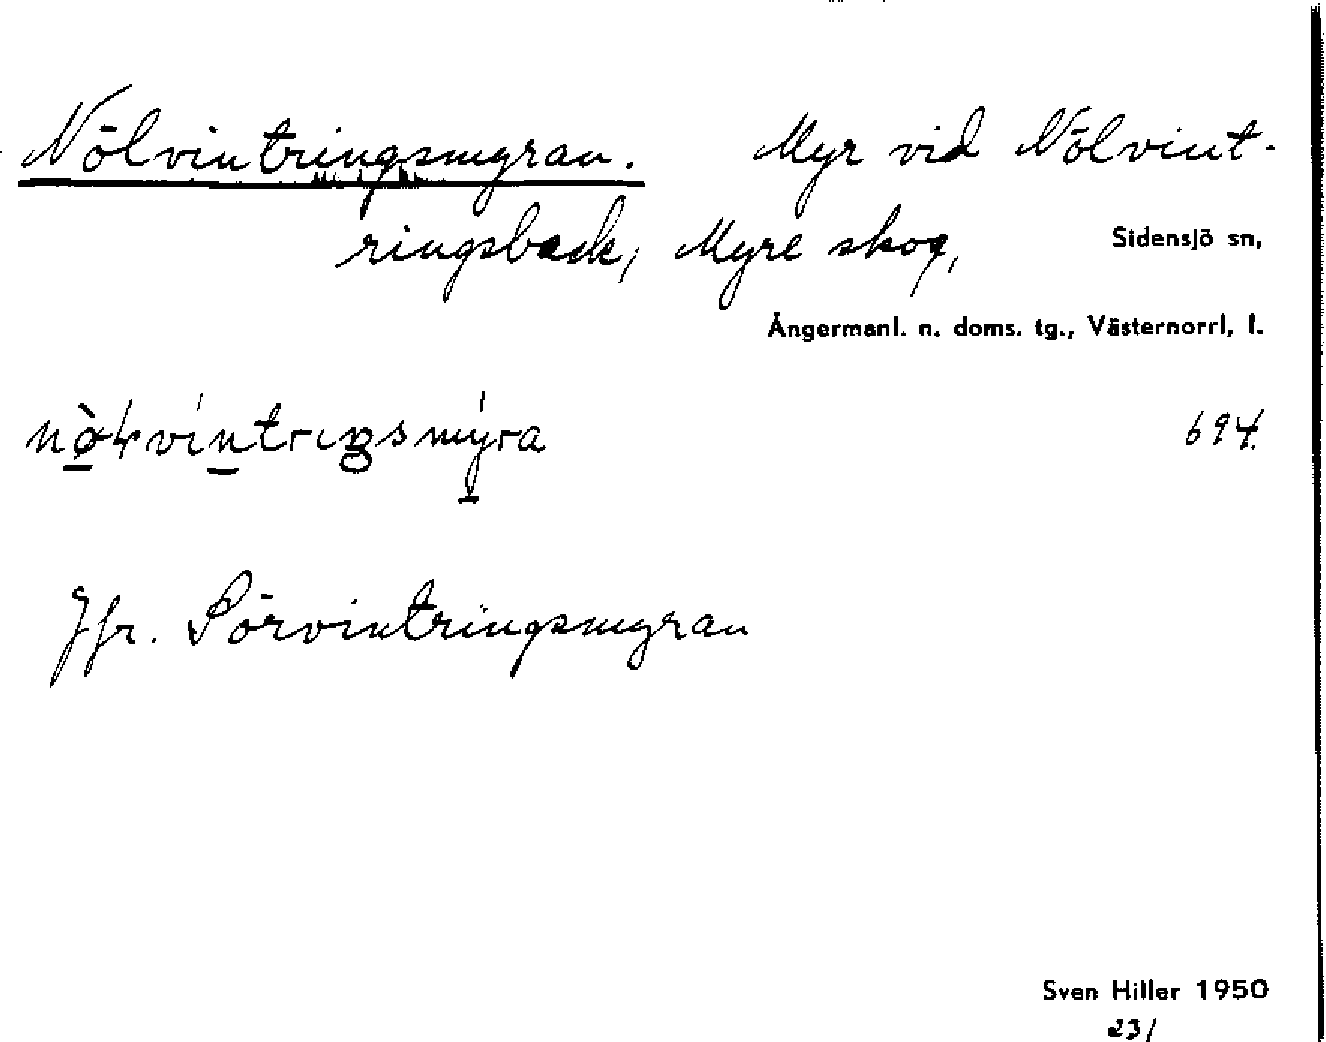 Nölvintringsmyran. Myr vid Nölvint-
ringsback, Myre skog, Sidensjö sn,
Ångermanl. n. doms. tg., Västernorrl, l.
694.
Jfr. Sörvintringsmyran
Sven Hiller 1950
23/